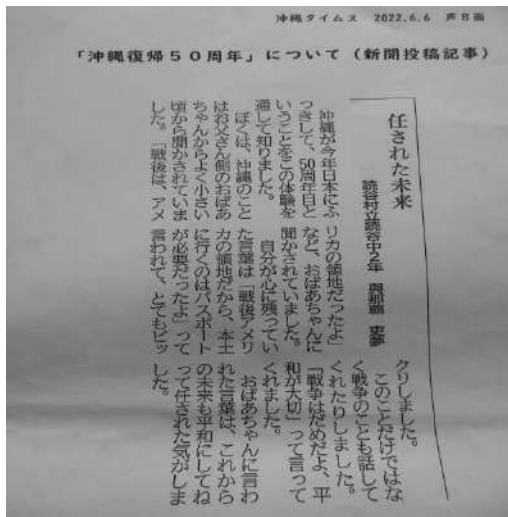 沖縄タイムス 2022.6.6 声B面
「沖縄復帰50周年」について（新聞投稿記事）
任された未来
読谷村立読谷中2年 與那覇
沖縄が今年日本にふ
っきして、50周年目と
いうことをこの体験を
通して知りました。
ぼくは、沖縄のこと
はお父さん側のおばあ
ちゃんからよく小さい
頃から聞かされていま
した。「戦後は、アメ
リカの領地だったよ」
など、おばあちゃんに
聞かされていました。
自分が心に残ってい
た言葉は「戦後アメリ
カの領地だから、本土
に行くのはパスポート
が必要だったよ」って
言われて、とてもビッ
クリしました。
このことだけではな
く戦争のことも話して
くれたりしました。
「戦争はだめだよ、平
和が大切」って言って
くれました。
おばあちゃんに言わ
れた言葉は、これから
の未来も平和にしてね
って任された気がしま
した。